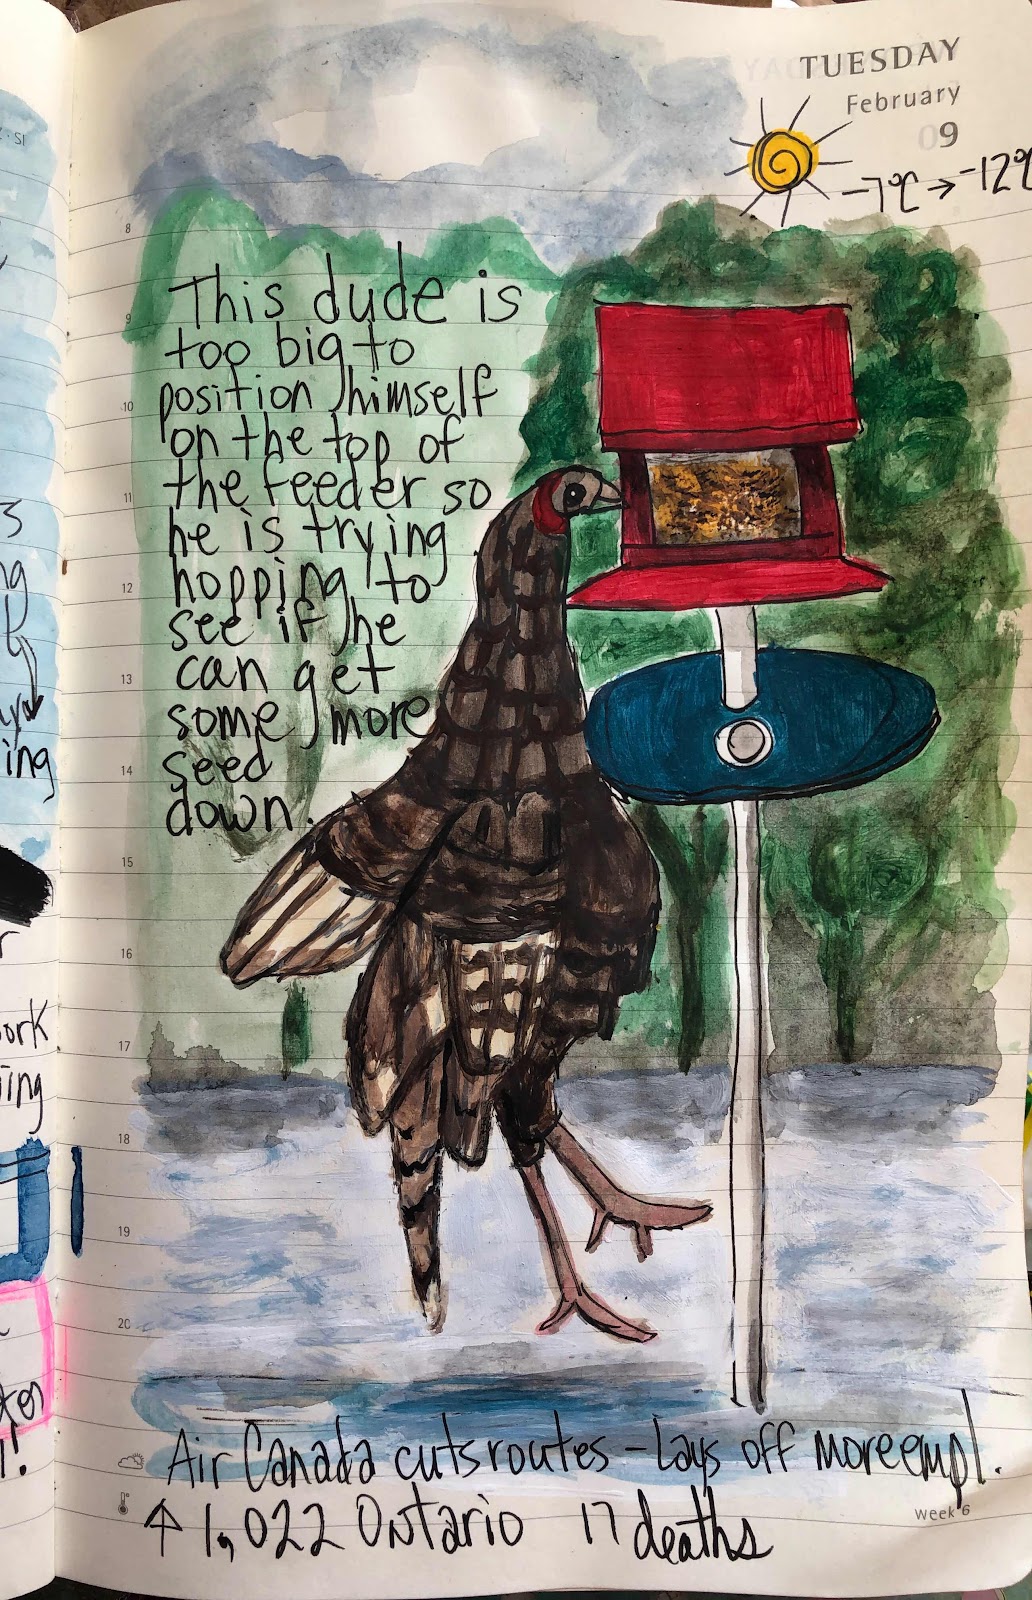 TUESDAY
February
09
-7°C → -12°C
8
This dude is
9
too big to
position himself
10
on the top of
the feeder so
11
he is trying
hopping to
12
see if he
can get
13
some more
seed
14
down.
15
16
17
18
19
20
Air Canada cuts routes - Lays off more empl.
Week 6
↑ 1,022 Ontario 17 deaths
3
ing
work
!